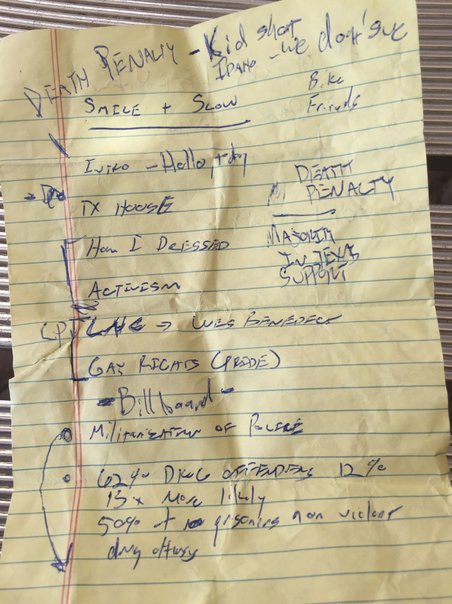 DEATH PENALTY - Kid shot
IDAHO - we don't sue
SMILE + SLOW
Bike
Friends
INTRO - Hello, 
TX HOUSE
DEATH
PENALTY
HOW I DRESSED
MAJORITY
IN TEXAS
SUPPORT
ACTIVISM
LPT LNC → WES BENEDICT
GAY RIGHTS (PRIDE)
- Billboard -
MILITARIZATION OF POLICE
62% DRUG OFFENDERS 12%
13x More likely
50% of prisoners non violent
drug